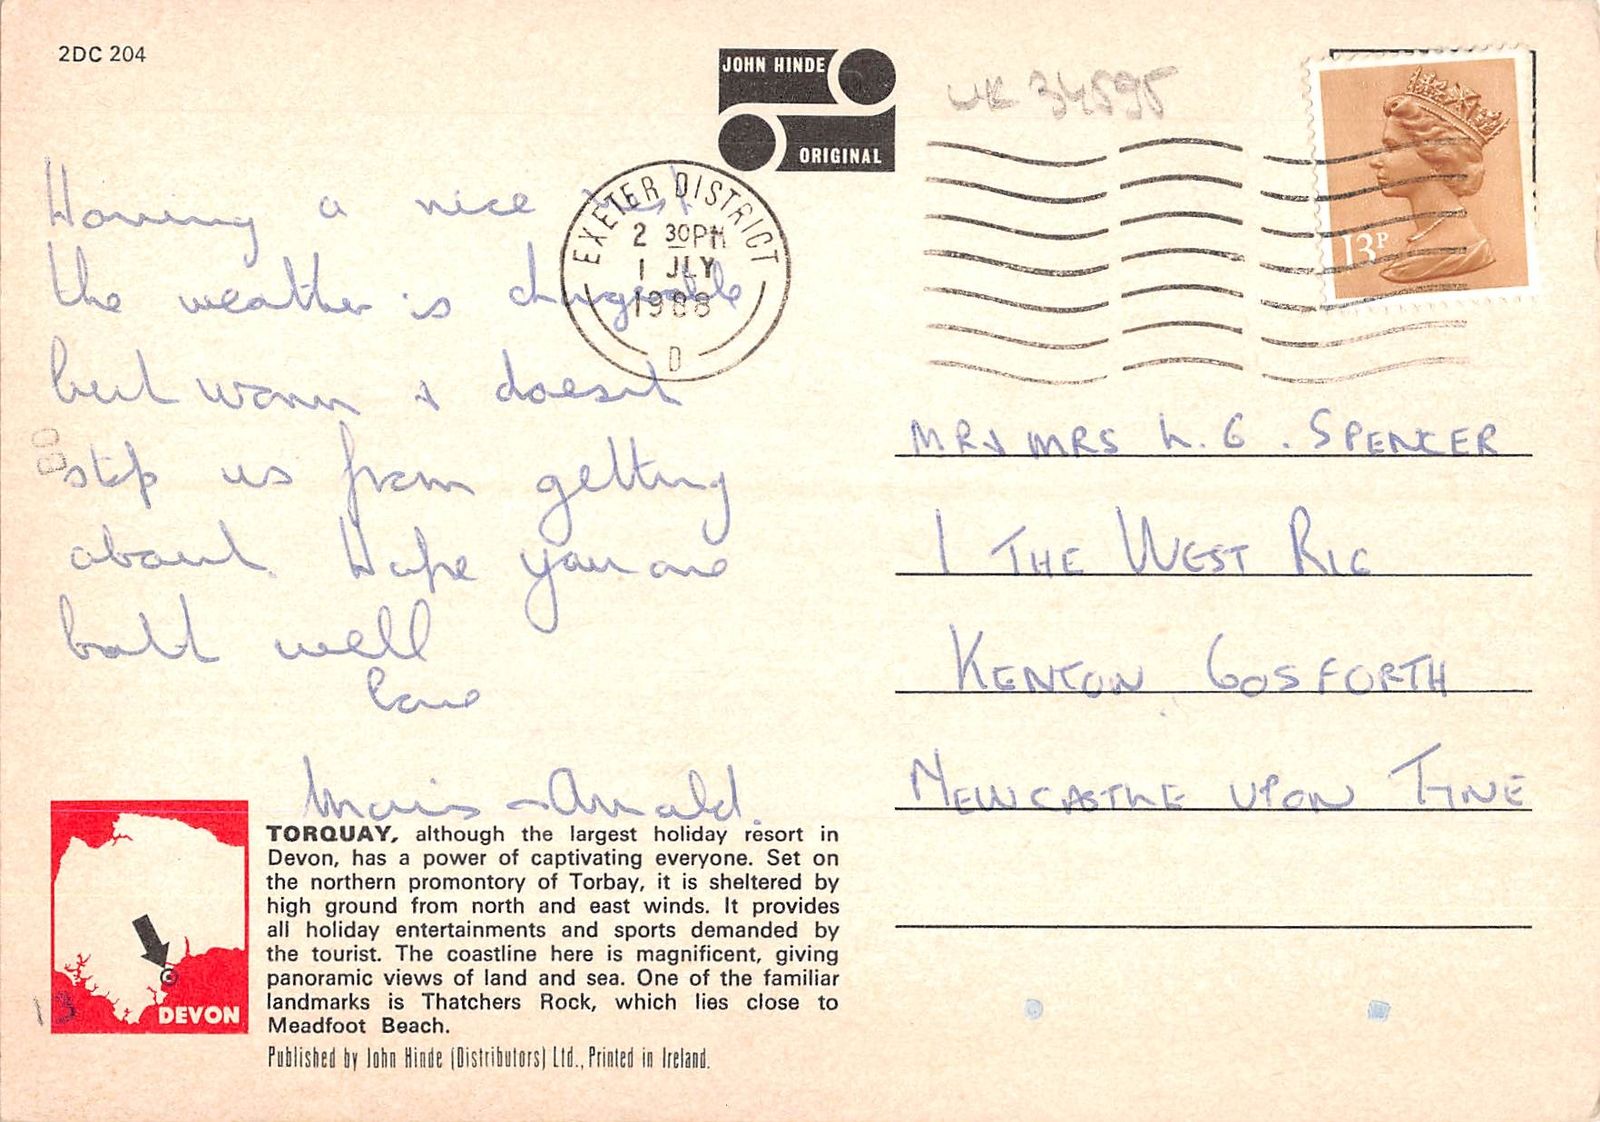 2DC 204
JOHN HINDE
ORIGINAL
UK 34595
13P
EXETER DISTRICT
2 30PM
1 JLY
1988
D
Having a nice rest
the weather is changeable
but warm & doesnt
stop us from getting
about. Hope you are
both well
love
Arnold.
MR & MRS L. G. SPENCER
1 THE WEST RIG
KENTON GOSFORTH
NEWCASTLE UPON TYNE
DEVON
13
TORQUAY, although the largest holiday resort in
Devon, has a power of captivating everyone. Set on
the northern promontory of Torbay, it is sheltered by
high ground from north and east winds. It provides
all holiday entertainments and sports demanded by
the tourist. The coastline here is magnificent, giving
panoramic views of land and sea. One of the familiar
landmarks is Thatchers Rock, which lies close to
Meadfoot Beach.
Published by John Hinde (Distributors) Ltd., Printed in Ireland.